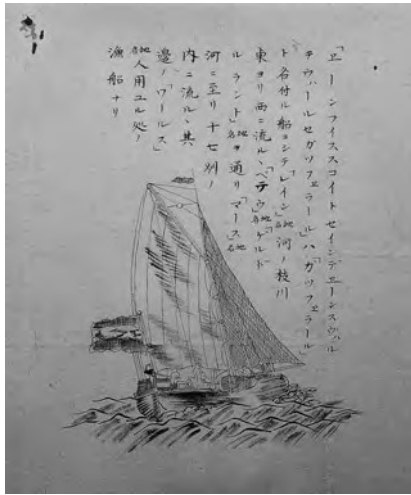 「ヱーンフイススコイト セインデヱーンスワル
テワールセガツフヱラール」ハ「ガツフヱラール」
ト名付ル船ニシテ「レイン」地名河ノ枝川
東ヨリ西ニ流ルヽ「ベテウ」地名「ゲルド
ルラント」地名ヲ通リ「マース」地名
河ニ至リ十七別ノ
内ニ流ルヽ其
邊ノ「ワールス」
地名人用ユル処ノ
漁船ナリ